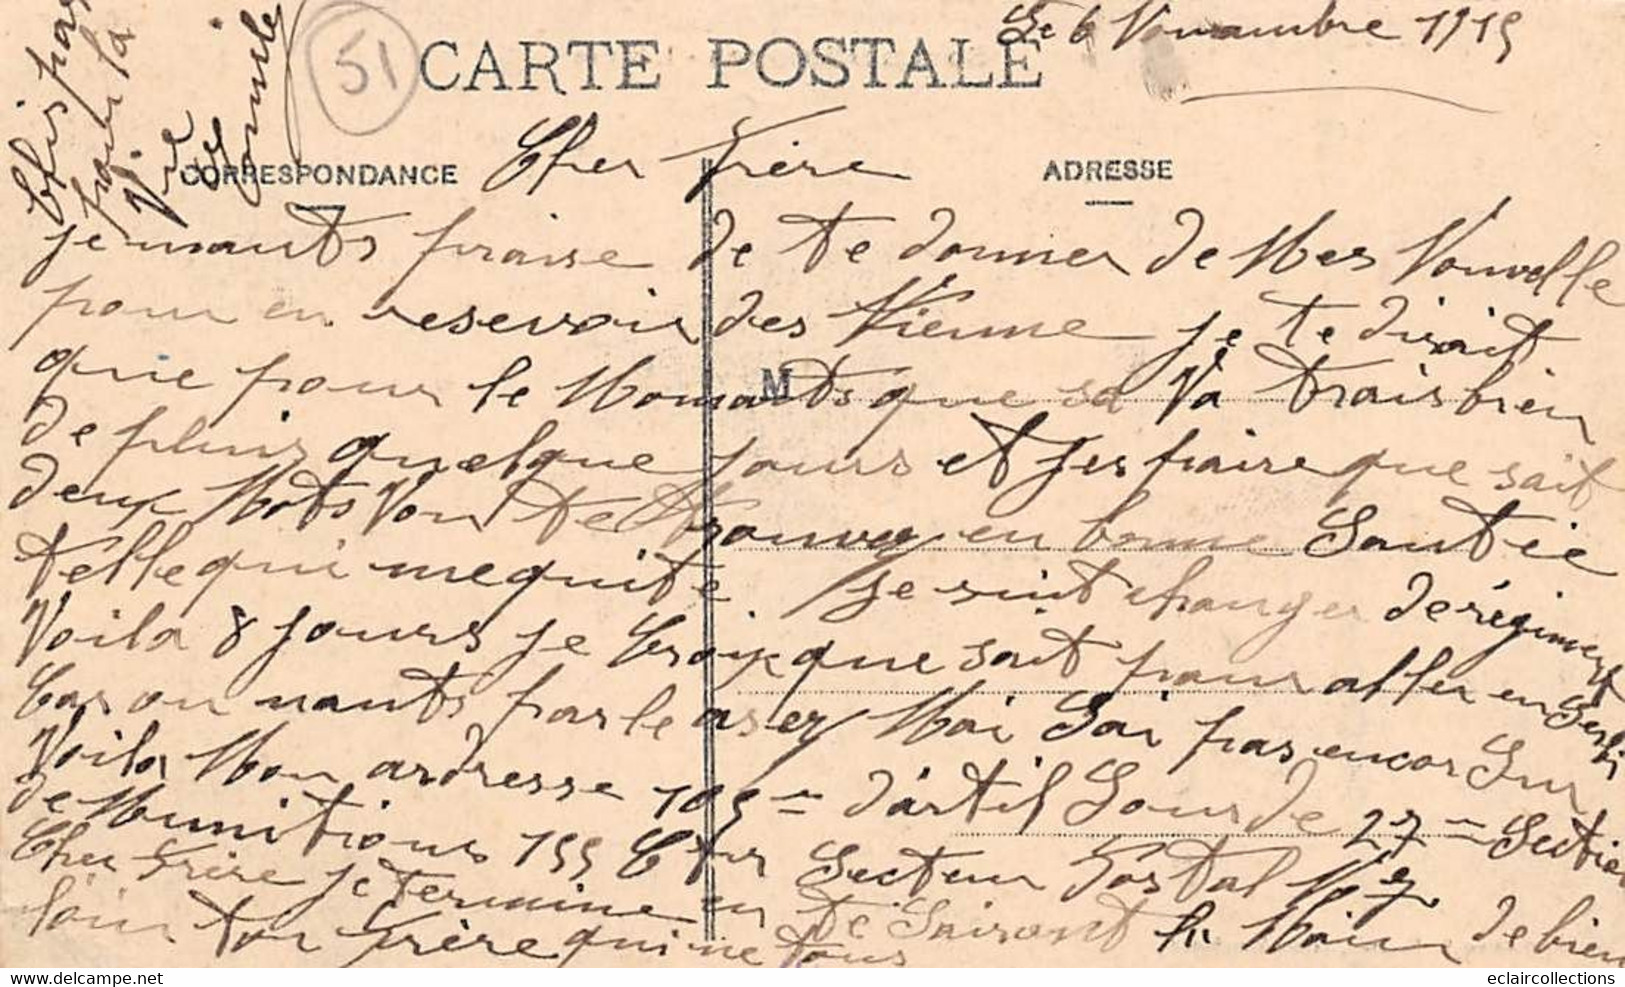 Le 6 Novambre 1915
51
CARTE POSTALE
CORRESPONDANCE
ADRESSE
M
Cher Frère
je mants praise de te donner de Mes Nouvelle
pour en resevoir des Tienne je te dirait
que pour le Momants que sa Va traisbien
de pluis quelque jours et jespaire que sait
deux Mots Von te trouver en bonne Santie
telle qui me quite je suit changer de régiment
Voila 8 jours je Croix que sait pour aller en Serbi
Car on nants parle asey Mai Sai pas encor Sur
Voila Mon ardresse 105me d'artil Lourde 27me Section
de Munitions 155 Ctr Secteur Postal No 7
Cher Frère je termine en te Sairant la Main de bien
loin ton frère qui ne
pas
la
eclaircollections